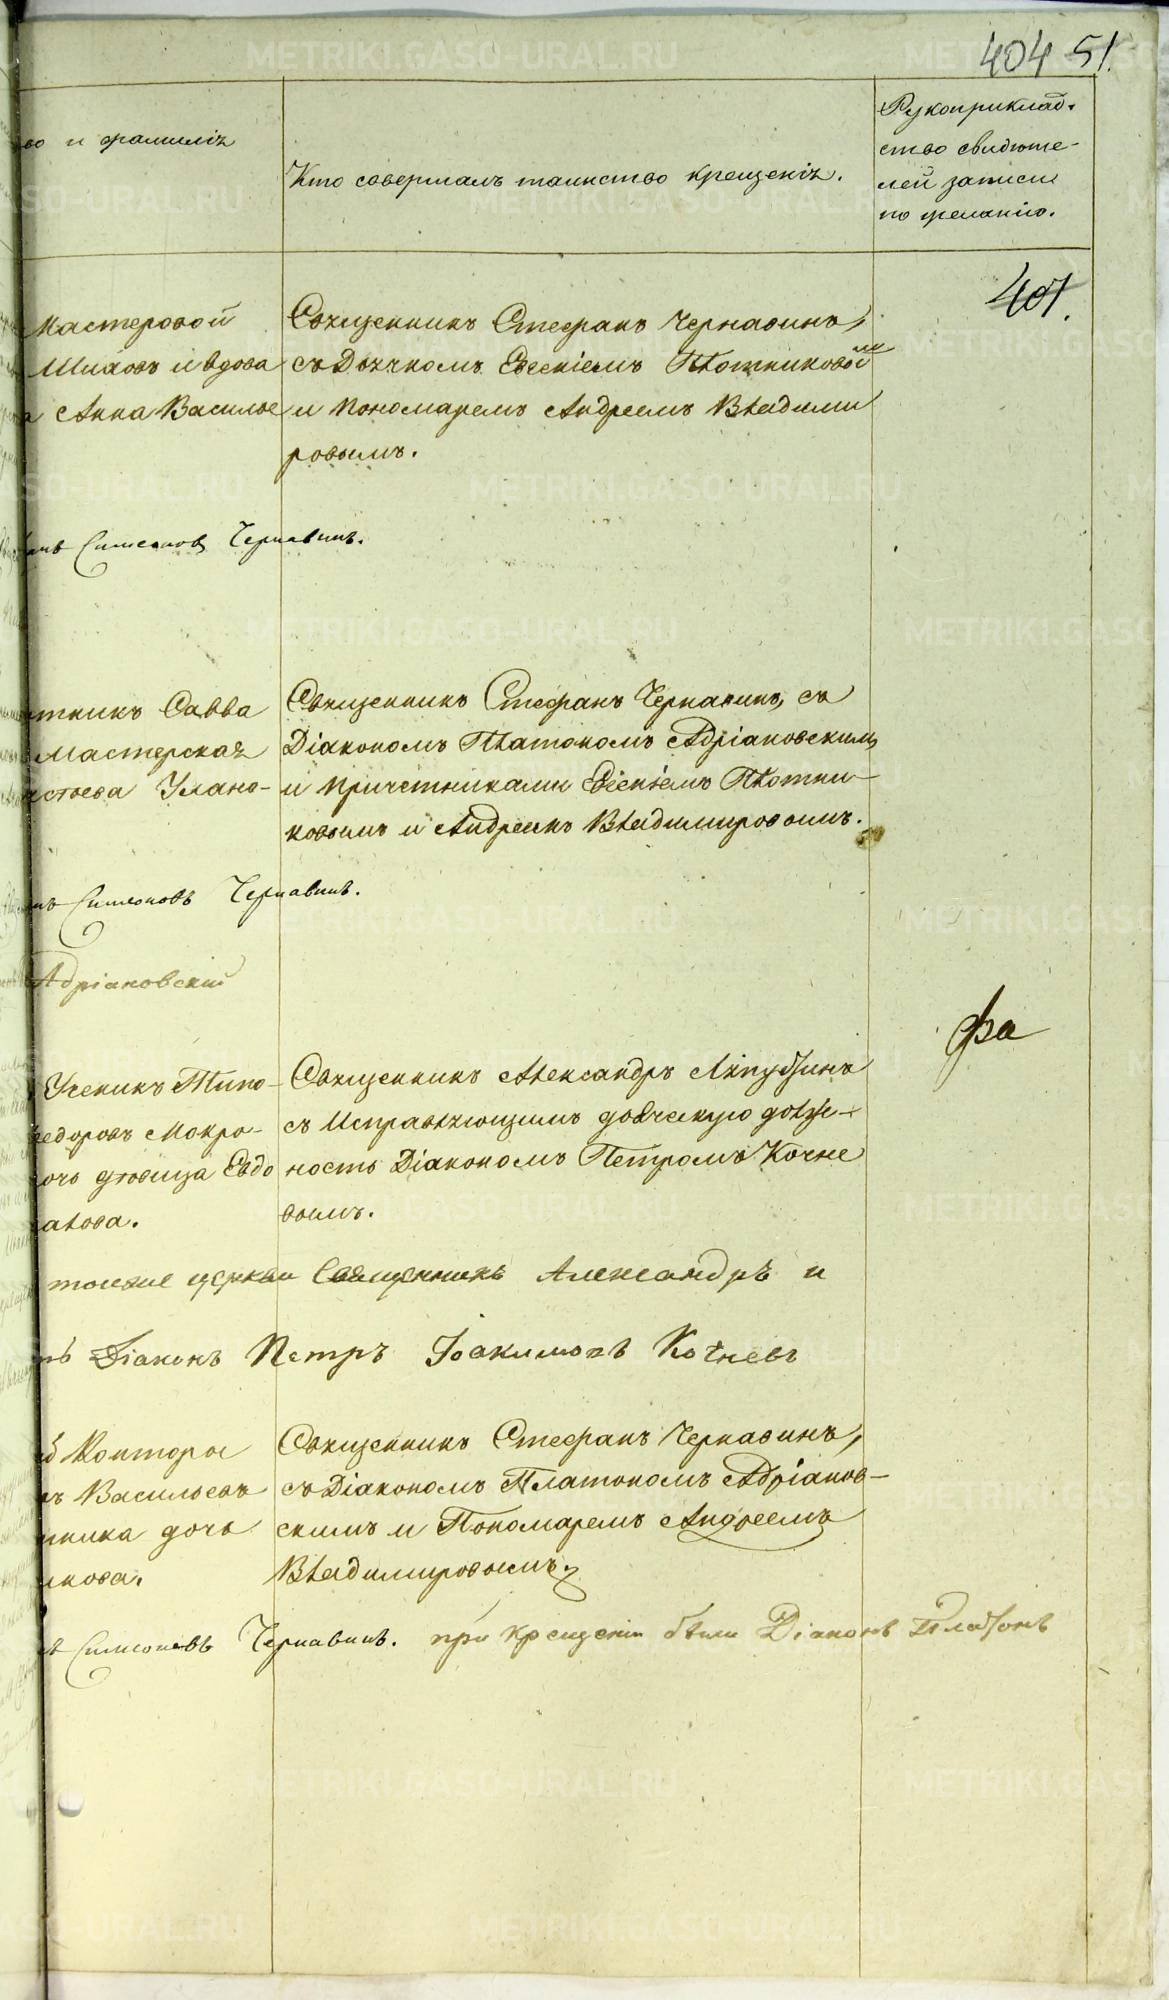 404 51.
во и фамилія
Кто совершалъ таинство крещенія.
Рукоприклад-
ство свидѣте-
лей записи
по желанію.
401.
Мастеровой
Шиховъ и вдова
Анна Василье
Священникъ Стефанъ Чернавинъ,
съ Дьячкомъ Евсевіемъ Плотниковымъ
и Пономаремъ Андреемъ Владими
ровымъ.
Симеоновъ Чернавинъ.
Савва
Мастерская
Улано-
Священникъ Стефанъ Чернавинъ, съ
Діакономъ Платономъ Адріановскимъ
и Причетниками Евсевіемъ Плотни-
ковымъ и Андреемъ Владимировымъ.
Симеоновъ Чернавинъ.
Адріановскій
фа
Ученикъ Типо-
едоровъ Мокро-
очь дѣвица Евдо
Священникъ Александръ Ляпустинъ
съ Исправляющимъ дьяческую долж-
ность Діакономъ Петромъ Кочне
вымъ.
церкви Священникъ Александръ и
Діаконъ Петръ Іоакимовъ Кочневъ
Конторы
Васильевъ
дочь
Священникъ Стефанъ Чернавинъ,
съ Діакономъ Платономъ Адріанов-
скимъ и Пономаремъ Андреемъ
Владимировымъ.
Симеоновъ Чернавинъ. при крещеніи были Діаконъ Платонъ
METRIKI.GASO-URAL.RU